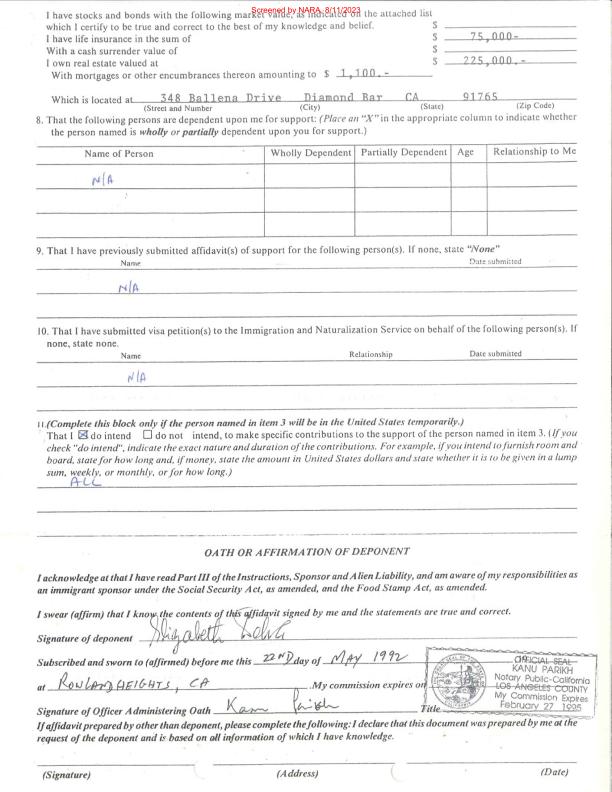 Screened by NARA, 8/11/2023
I have stocks and bonds with the following market value, as indicated on the attached list
which I certify to be true and correct to the best of my knowledge and belief. $
I have life insurance in the sum of $ 75,000-
With a cash surrender value of $
I own real estate valued at $ 225,000.-
With mortgages or other encumbrances thereon amounting to $ 1,100.-
Which is located at 348 Ballena Drive Diamond Bar CA 91765
(Street and Number) (City) (State) (Zip Code)
8. That the following persons are dependent upon me for support: (Place an "X" in the appropriate column to indicate whether
the person named is wholly or partially dependent upon you for support.)
Name of Person Wholly Dependent Partially Dependent Age Relationship to Me
N/A
9. That I have previously submitted affidavit(s) of support for the following person(s). If none, state "None"
Name Date submitted
N/A
10. That I have submitted visa petition(s) to the Immigration and Naturalization Service on behalf of the following person(s). If
none, state none.
Name Relationship Date submitted
N/A
11.(Complete this block only if the person named in item 3 will be in the United States temporarily.)
That I ☒ do intend ☐ do not intend, to make specific contributions to the support of the person named in item 3. (If you
check "do intend", indicate the exact nature and duration of the contributions. For example, if you intend to furnish room and
board, state for how long and, if money, state the amount in United States dollars and state whether it is to be given in a lump
sum, weekly, or monthly, or for how long.)
ALL
OATH OR AFFIRMATION OF DEPONENT
I acknowledge at that I have read Part III of the Instructions, Sponsor and Alien Liability, and am aware of my responsibilities as
an immigrant sponsor under the Social Security Act, as amended, and the Food Stamp Act, as amended.
I swear (affirm) that I know the contents of this affidavit signed by me and the statements are true and correct.
Signature of deponent Elizabeth
Subscribed and sworn to (affirmed) before me this 22ND day of MAY 1992
at ROWLAND HEIGHTS, CA .My commission expires on
Signature of Officer Administering Oath Kanu Parikh Title
OFFICIAL SEAL
KANU PARIKH
Notary Public-California
LOS ANGELES COUNTY
My Commission Expires
February 27, 1995
If affidavit prepared by other than deponent, please complete the following: I declare that this document was prepared by me at the
request of the deponent and is based on all information of which I have knowledge.
(Signature) (Address) (Date)